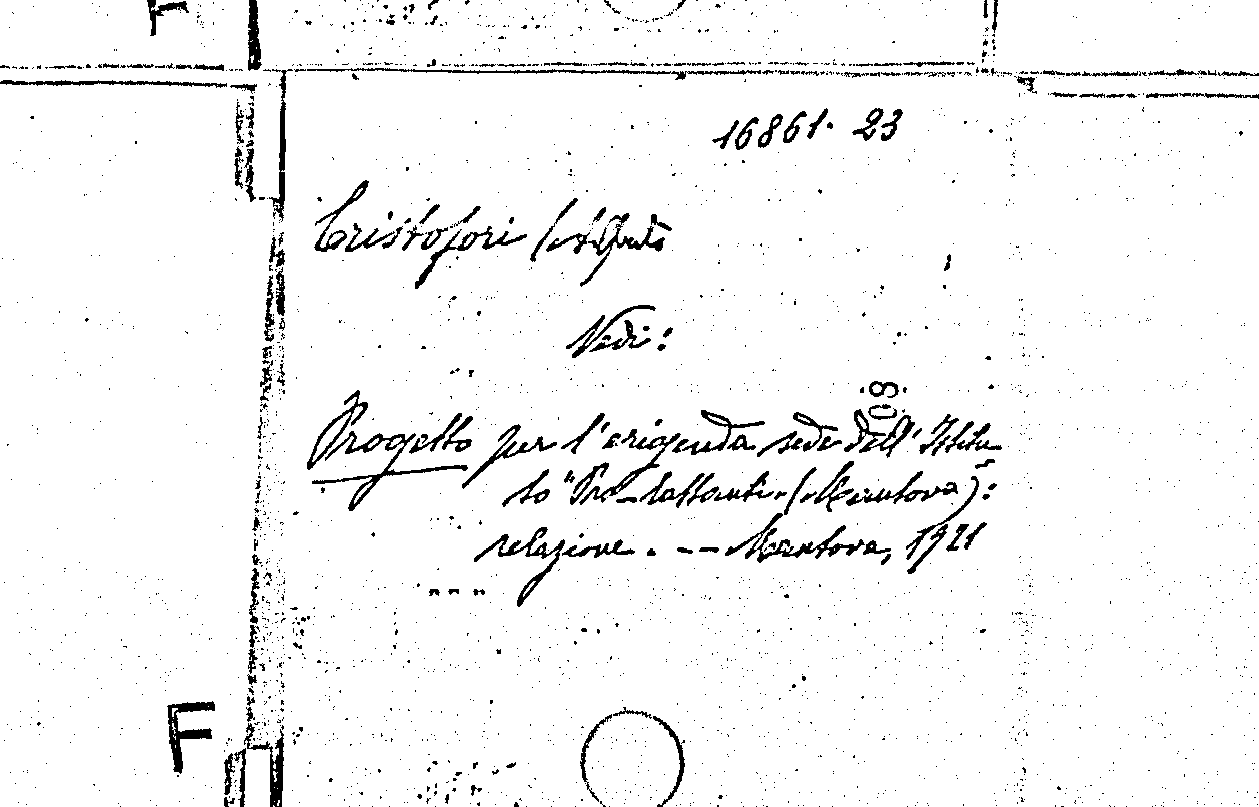 F
16861. 23
Cristofori (Alfredo
Vedi:
Progetto per l'erigenda sede dell'Istitu-
to "Pro-lattanti„ (Mantova):
relazione. -- Mantova, 1921
F